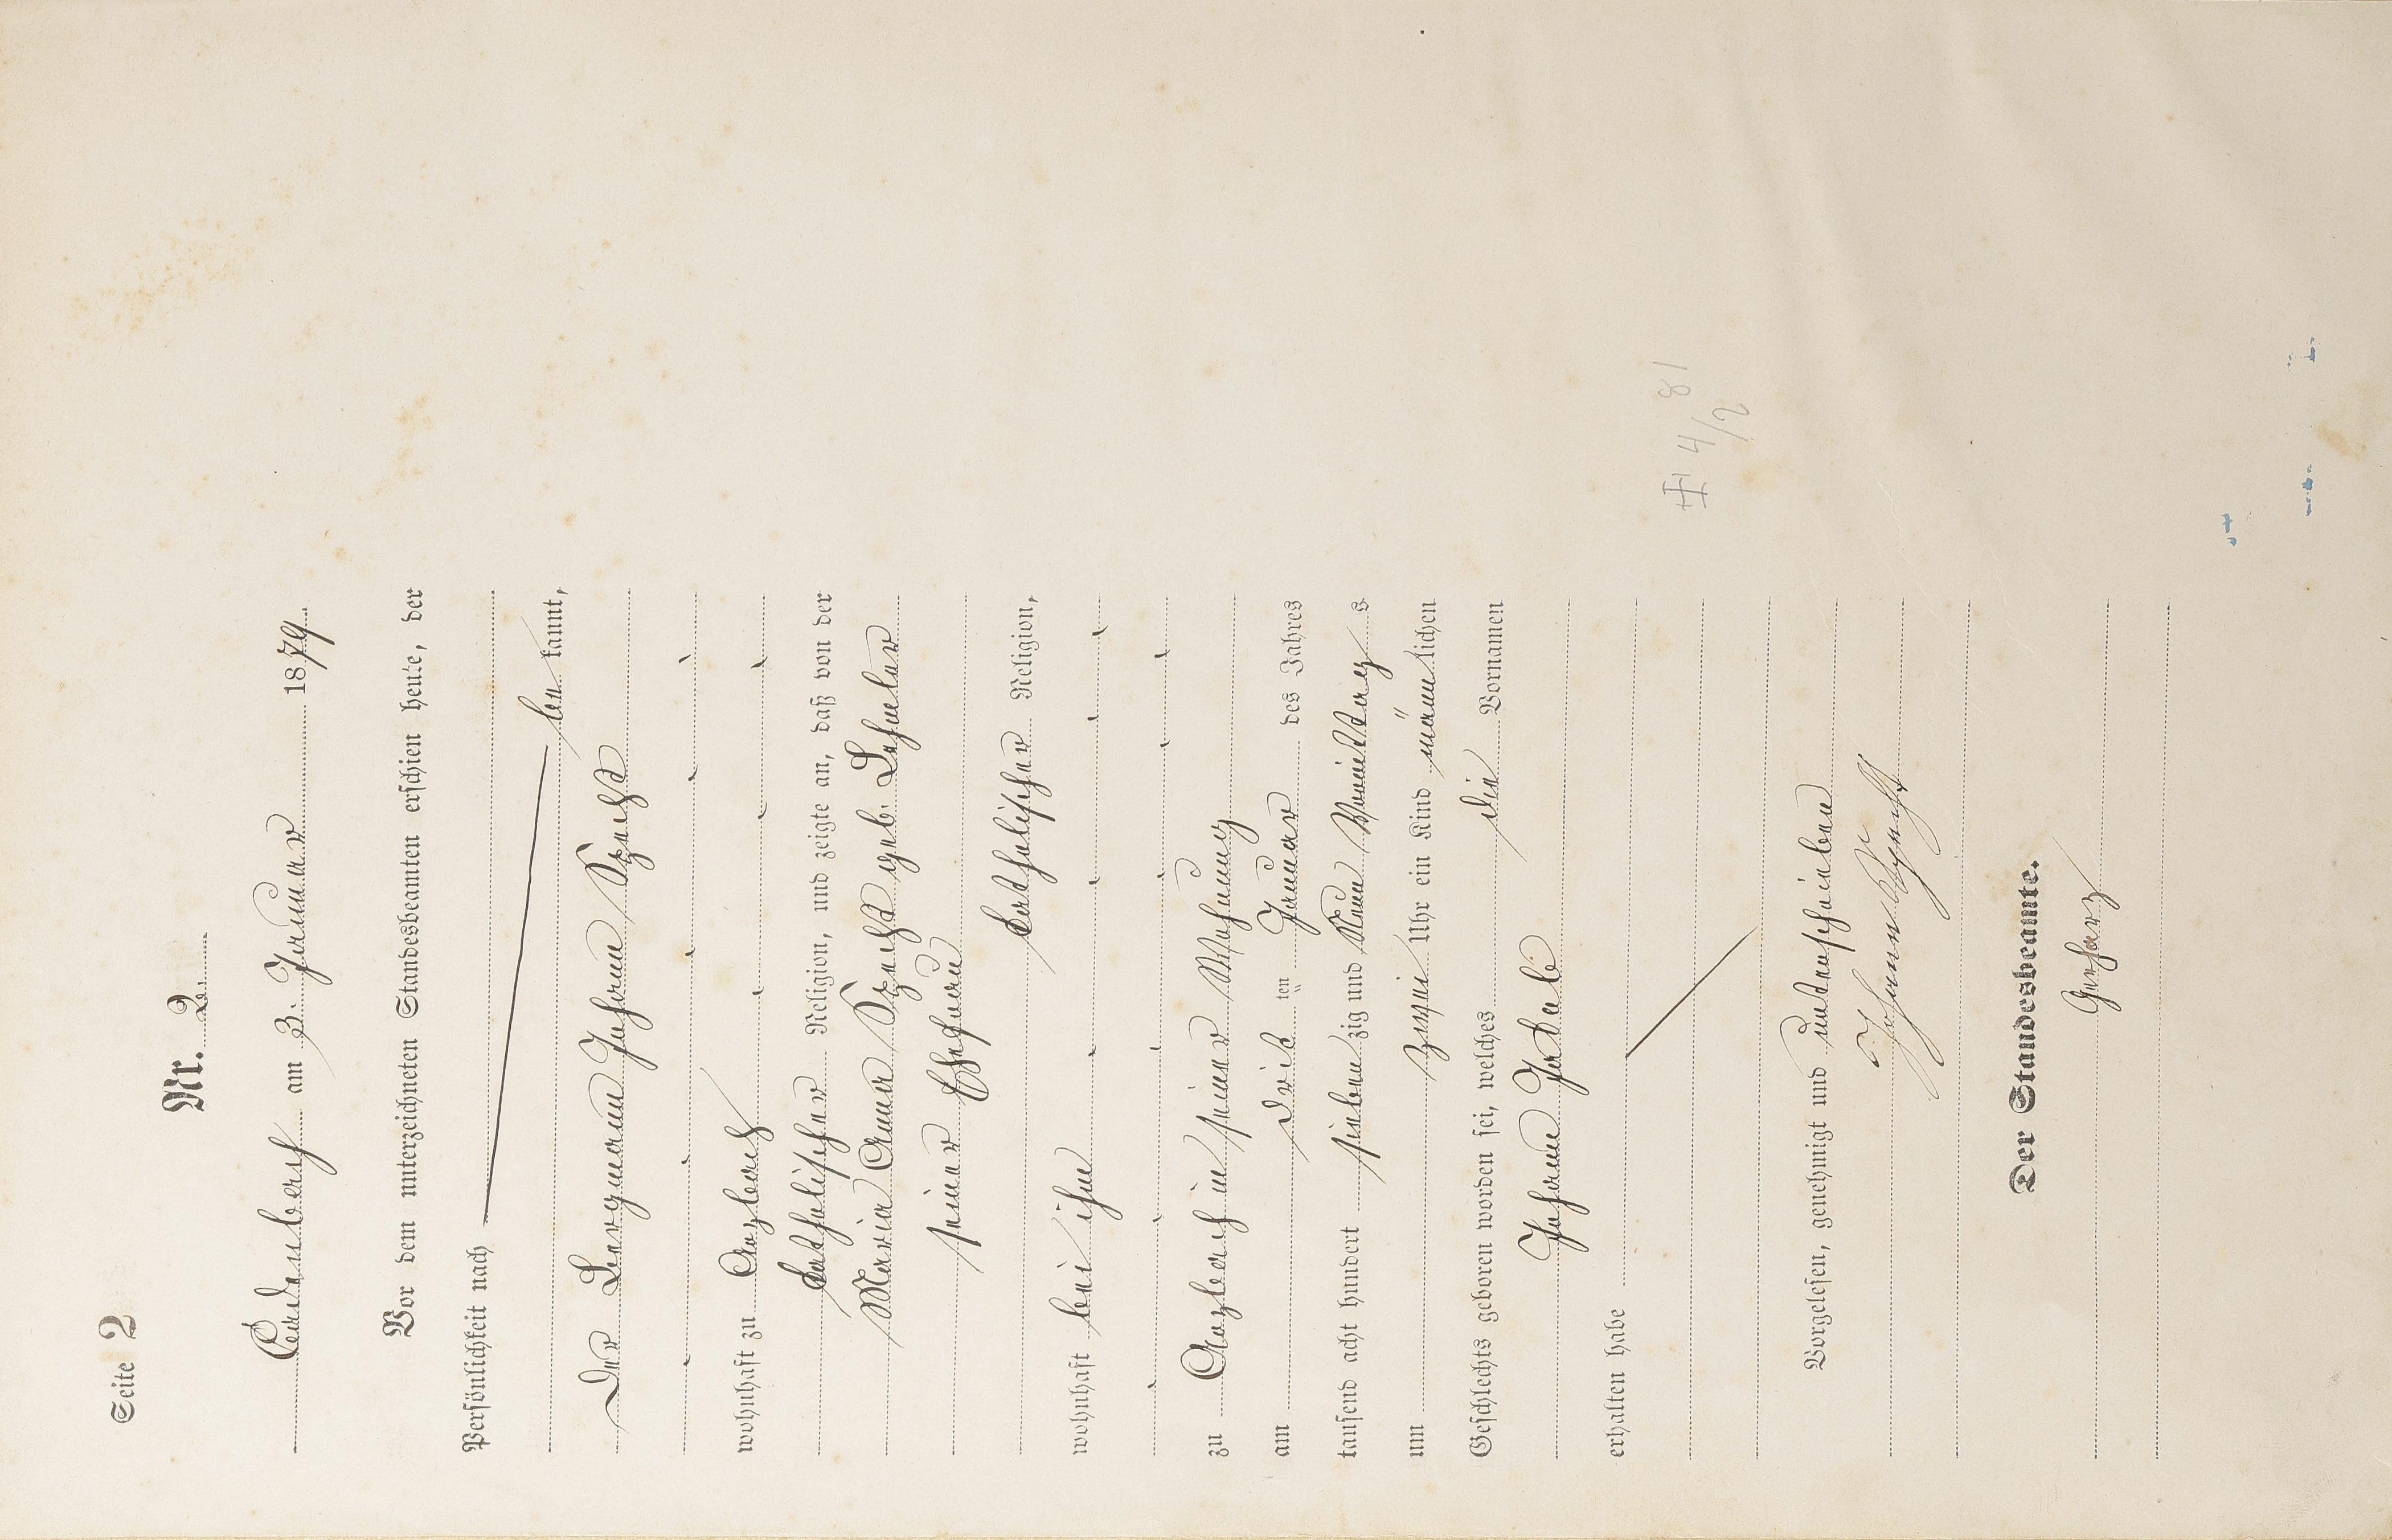 Seite 2
Nr. 2.
Cadenbach am 3. Januar 1879.
Vor dem unterzeichneten Standesbeamten erschien heute, der
Persönlichkeit nach
be kannt,
Der Bergmann Johann Specht
wohnhaft zu Arzbach
katholischer Religion, und zeigte an, daß von der
Maria Anna Specht geb. Lehnler
seiner Ehefrau
katholischer Religion,
wohnhaft bei ihm
zu Arzbach in seiner Wohnung
am drit ten Januar des Jahres
tausend acht hundert sieben zig und Neun Vormittag s
um zwei Uhr ein Kind männ lichen
Geschlechts geboren worden sei, welches die Vornamen
Johann Jakob
erhalten habe
Vorgelesen, genehmigt und unterschrieben
Johann Specht
Der Standesbeamte.
Gerharz
4/2 81